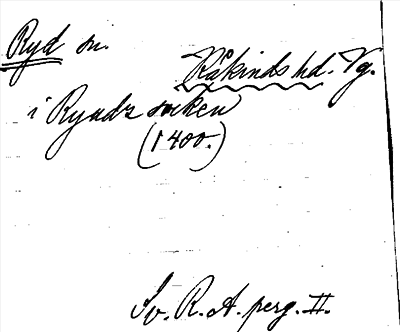 Ryd sn.
Kåkinds hd. Vg.
i Ryudz socken
(1400.)
Sv. R. A. perg. II.